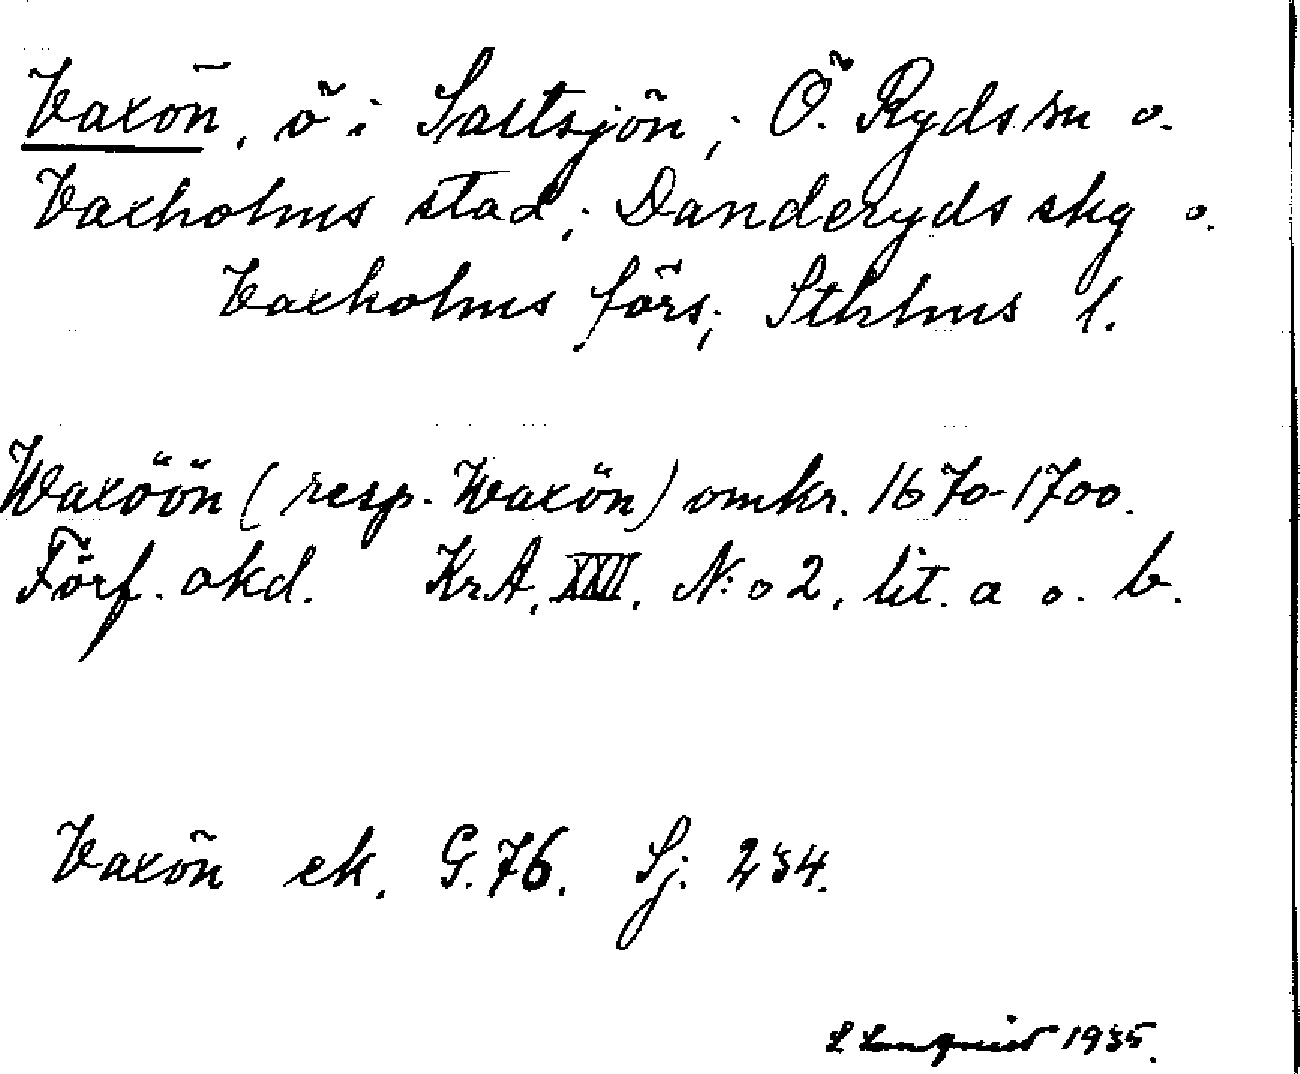 Vaxön, ö i Saltsjön; Ö. Ryds sn o.
Vaxholms stad; Danderyds skg o.
Vaxholms förs; Sthlms l.
Waxöön (resp. Waxön) omkr. 1670-1700.
Förf. okd. KrA, XXII, N:o 2, lit. a o. b.
Vaxön ek. G.76. Sj. 234.
1935.